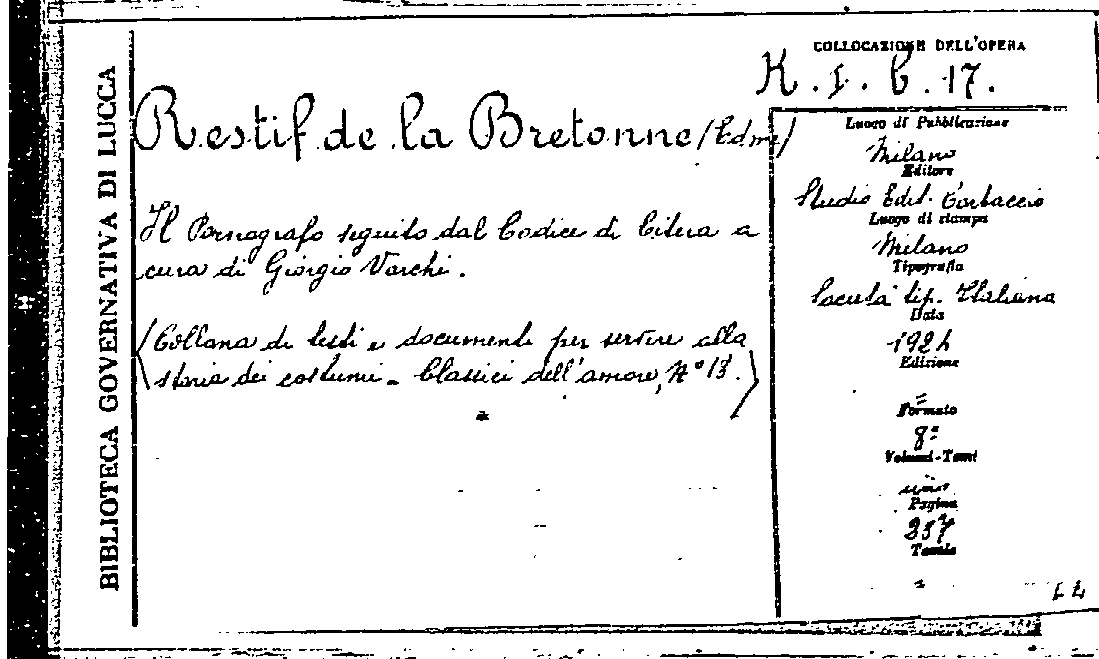 BIBLIOTECA GOVERNATIVA DI LUCCA
COLLOCAZIONE DELL'OPERA
K. I. 6. 17.
Restif de la Bretonne (Edme)
Il Pornografo seguito dal Codice di Citera a
cura di Giorgio Varchi.
(Collana di testi e documenti per servire alla
storia dei costumi - Classici dell'amore, N° 13.)
=
Luogo di Pubblicazione
Milano
Editore
Studio Edit. Corbaccio
Luogo di stampa
Milano
Tipografia
Società tip. Italiana
Data
1924
Edizione
=
Formato
8°
Volumi-Tomi
uno
Pagine
257
Tavole
=